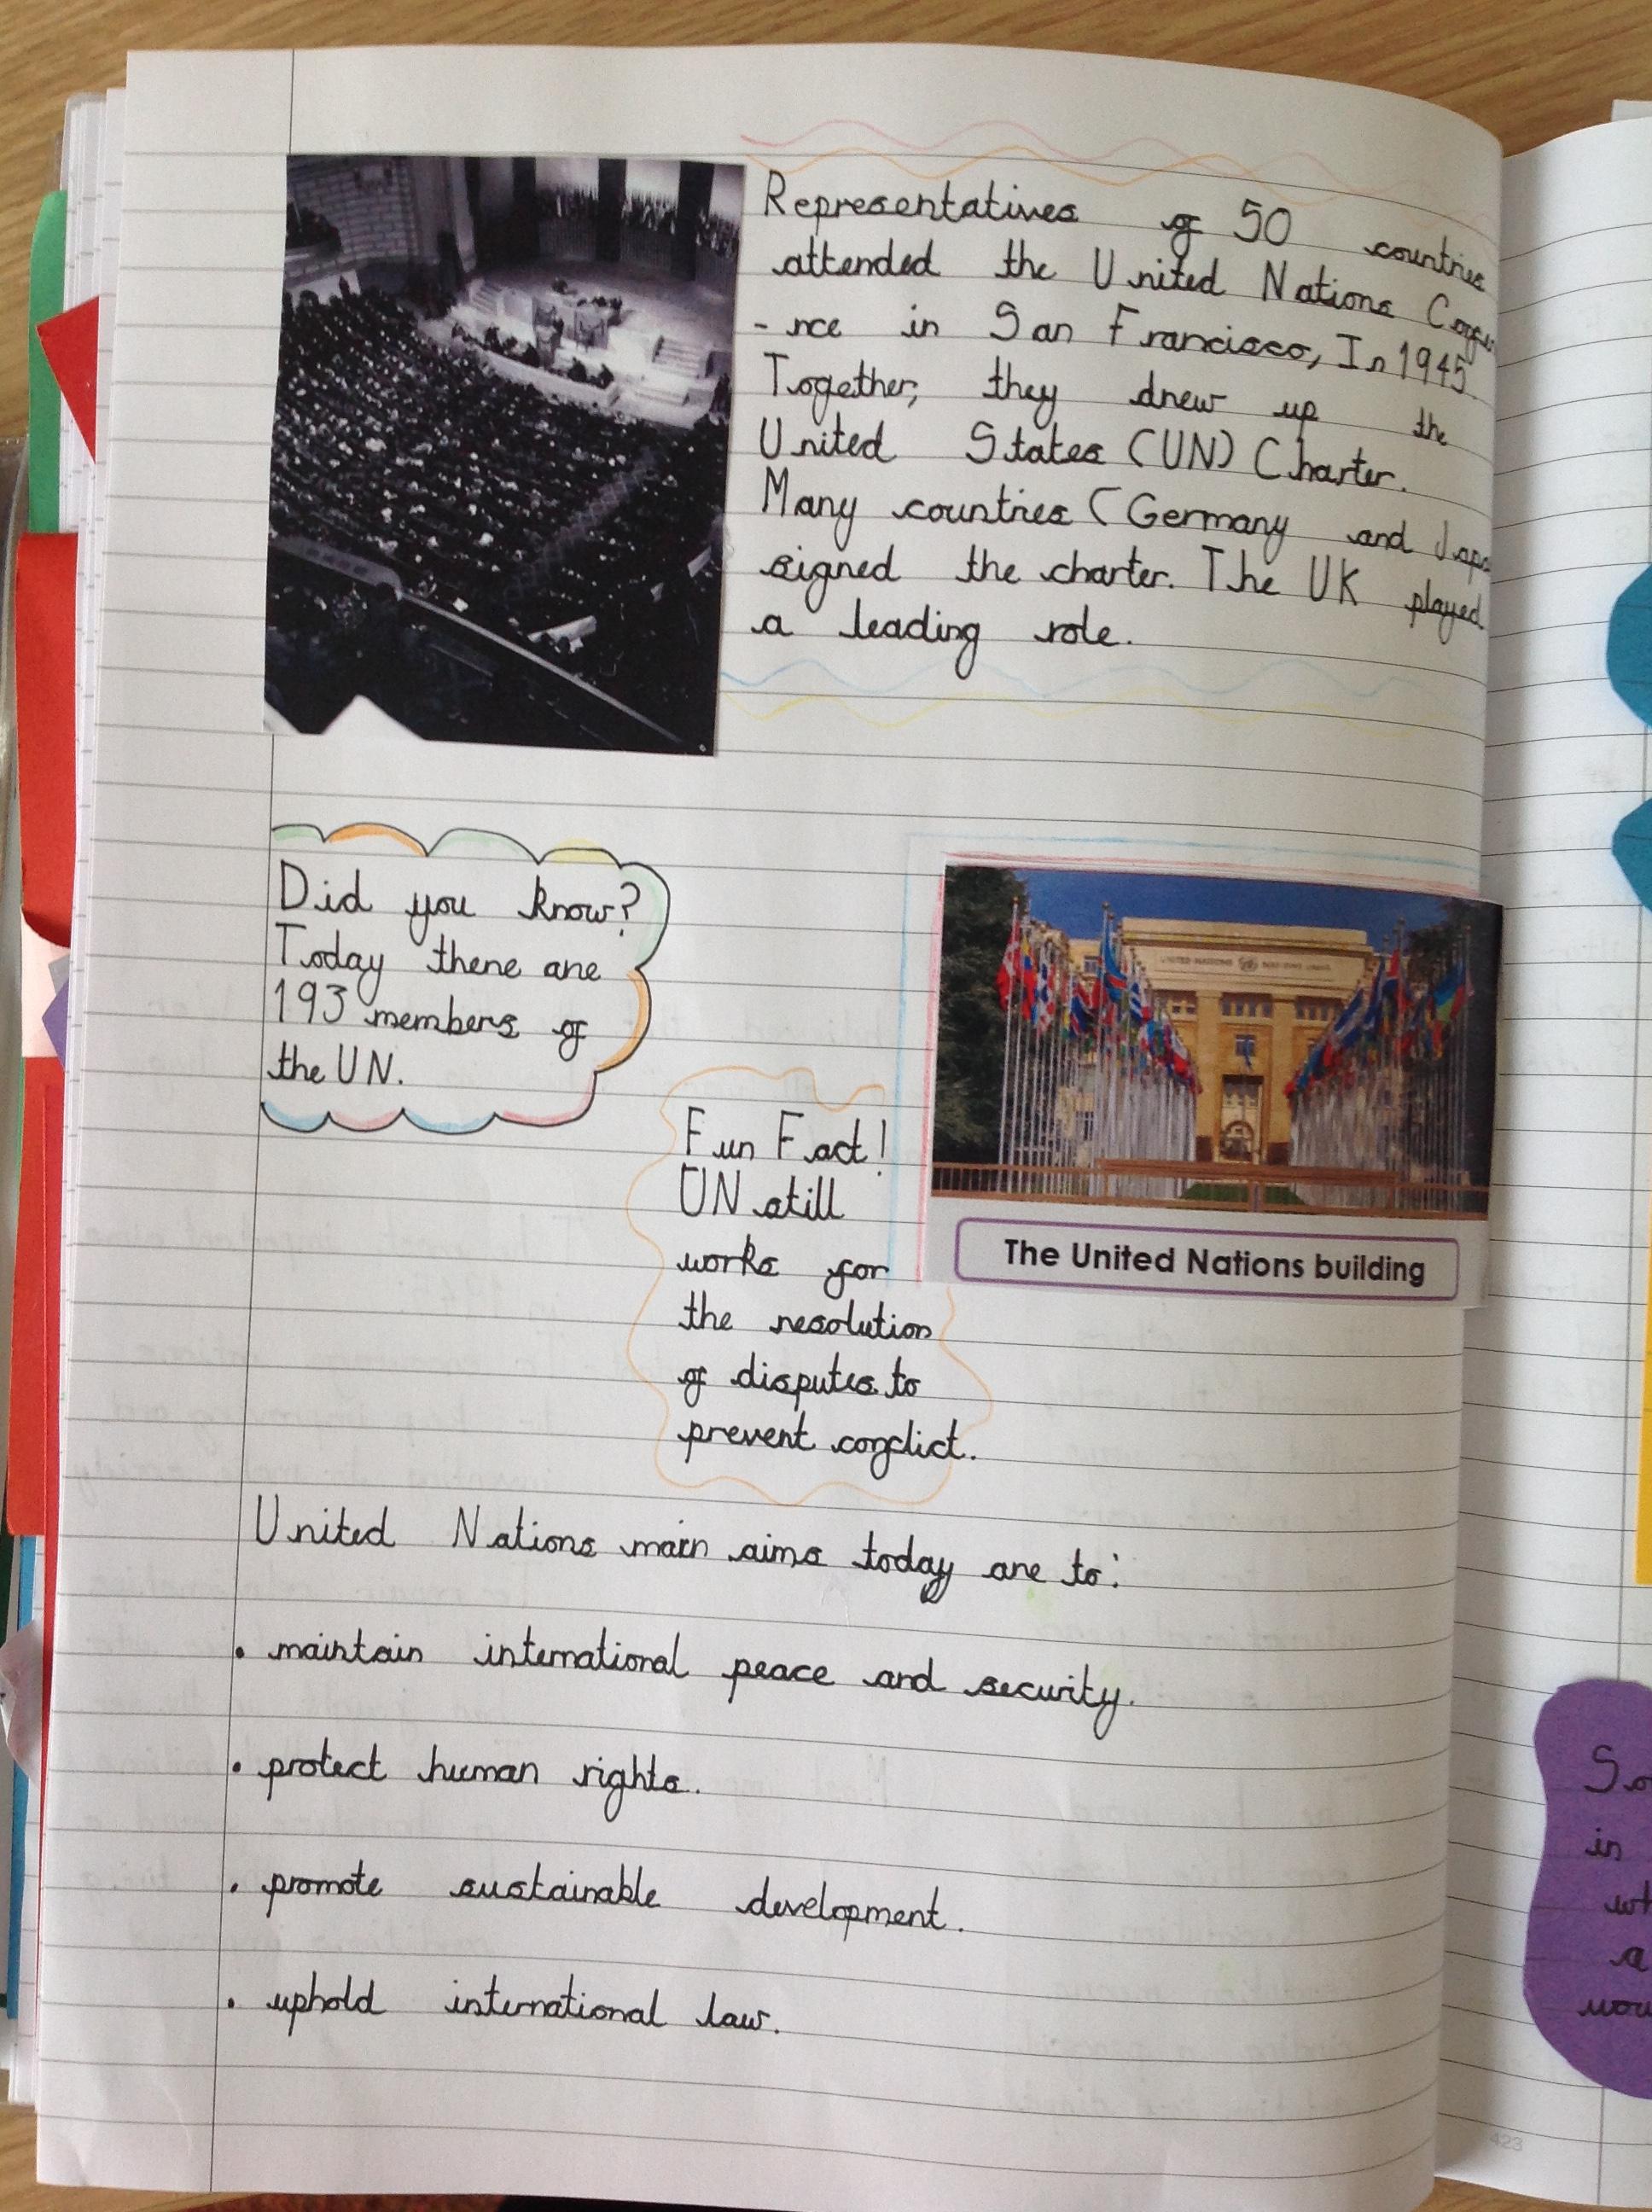 Representatives of 50 countries
attended the United Nations
-nce in San Francisco, In 1945.
Together, they drew up the
United States (UN) Charter.
Many countries (Germany and
signed the charter. The UK played
a leading role.
Did you know?
Today there are
193 members of
the UN.
UNITED NATIONS NATIONS UNIES
The United Nations building
Fun Fact!
UN still
works for
the resolution
of disputes to
prevent conflict.
United Nations main aims today are to:
• maintain international peace and security.
• protect human rights.
• promote sustainable development.
• uphold international law.
So
in
wh
a
wou
423